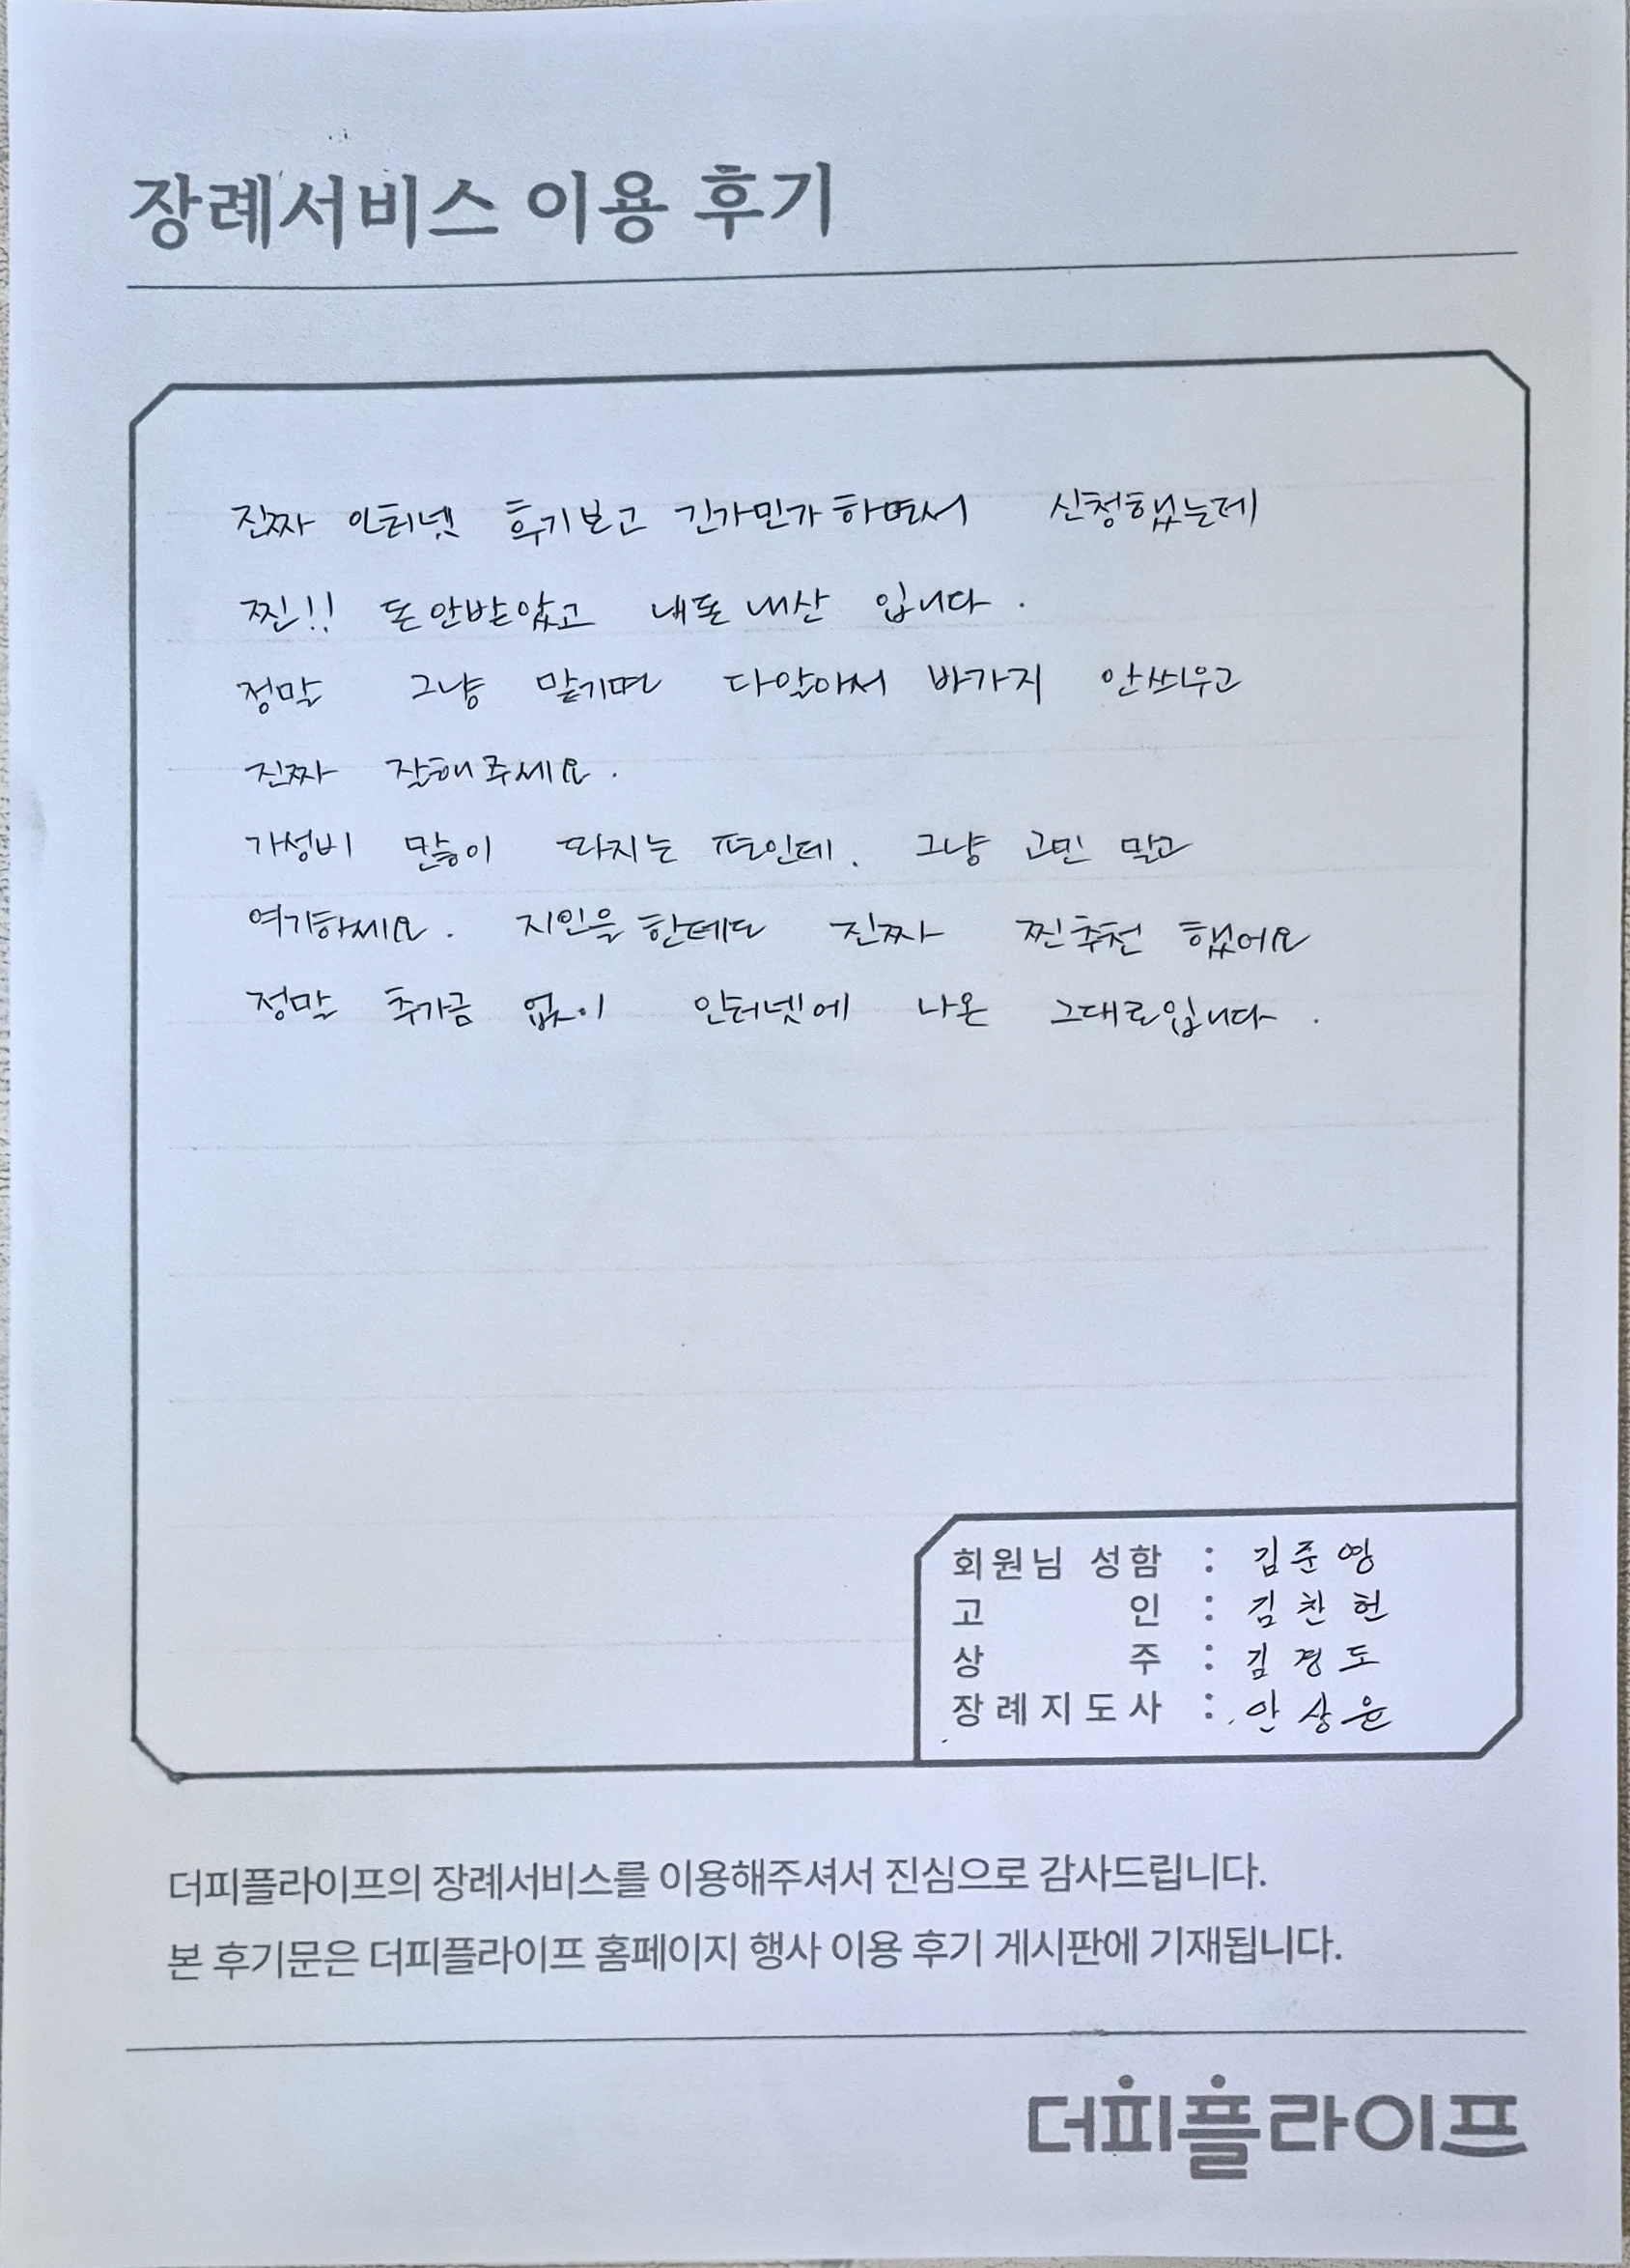 장례서비스 이용 후기
진짜 인터넷 후기보고 긴가민가하면서 신청했는데
찐!! 돈안받았고 내돈내산 입니다.
정말 그냥 맡기면 다알아서 바가지 안씌우고
진짜 잘해주세요.
가성비 많이 따지는 편인데. 그냥 고민 말고
여기하세요. 지인을한테도 진짜 찐추천 했어요
정말 추가금 없이 인터넷에 나온 그대로입니다.
회원님 성함 : 김준영
고 인 : 김찬헌
상 주 : 김경도
장례지도사 : 안상윤
더피플라이프의 장례서비스를 이용해주셔서 진심으로 감사드립니다.
본 후기문은 더피플라이프 홈페이지 행사 이용 후기 게시판에 기재됩니다.
더피플라이프